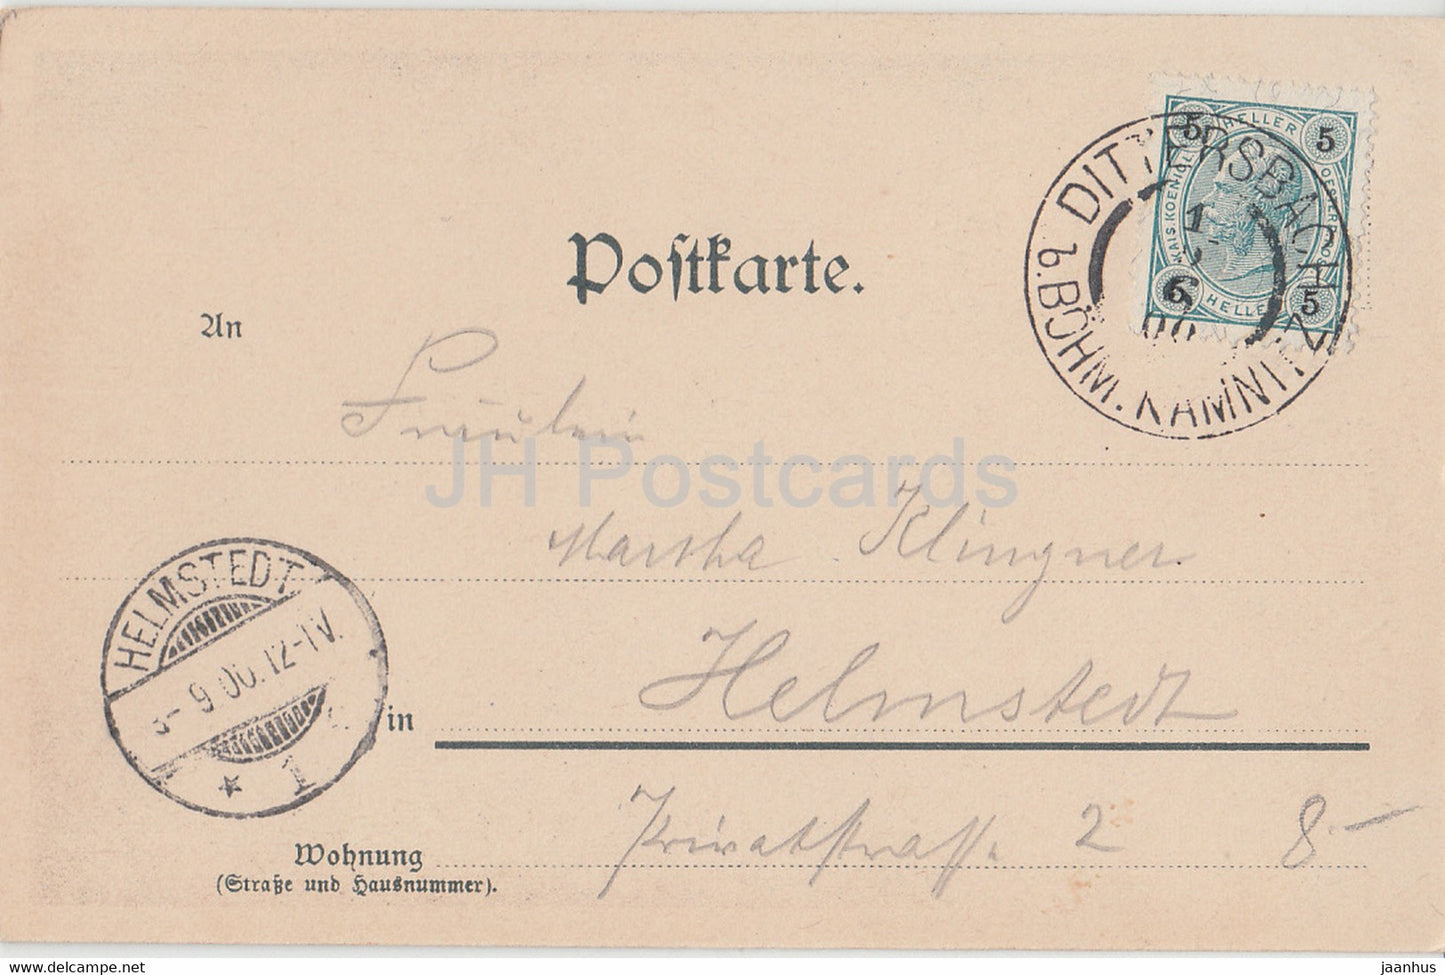 Postkarte.
5 HELLER 5
KAIS.KOENIGL.
HELLER 5
DITTERSBACH
b. BÖHM. KAMNITZ
1
6
An
Fräulein
JH Postcards
Martha Klingner
HELMSTEDT
9.00.12-1V.
* 1
in Helmstedt
Wohnung
(Straße und Hausnummer).
Privatstrasse 2
8.-
www.jaanhus.net
jaanhus